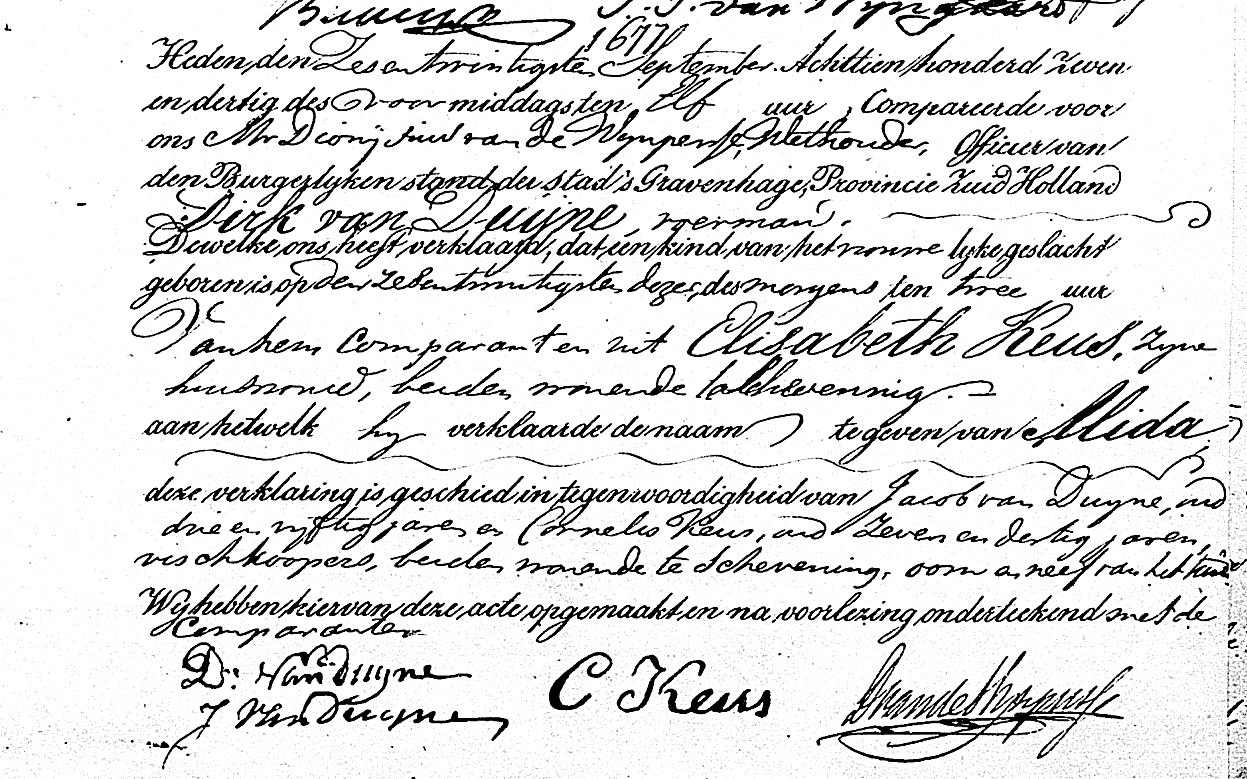 J. J. van Wyngaard
1677
Heden, den Zesentwintigsten September. Achttien honderd zeven
en dertig, des voor middags ten Elf uur, Compareerde voor
ons Mr Dionysius van de Wynpersse, Wethouder, Officier van
den Burgerlyken stand der stad 's Gravenhage, Provincie Zuid Holland
Dirk van Duyne, voerman.
Dewelke ons heeft verklaard, dat een kind van het vrouwelyke geslacht
geboren is op den zesentwintigsten dezer, des morgens ten twee uur
Van hem Comparant en uit Elisabeth Keus, zyne
huisvrouw, beiden wonende te
aan hetwelk hy verklaarde de naam te geven van Alida
deze verklaring is geschied in tegenwoordigheid van Jacob van Duyne, oud
drie en vyftig jaren en Cornelis Keus, oud zeven en dertig jaren,
vischkoopers, beiden wonende te Schevening, oom en neef van het kind
Wij hebben hiervan deze acte opgemaakt en na voorlezing onderteekend met de
Comparanten
D: van Duyne
J van Duyne
C Keus
D van de Wynpersse